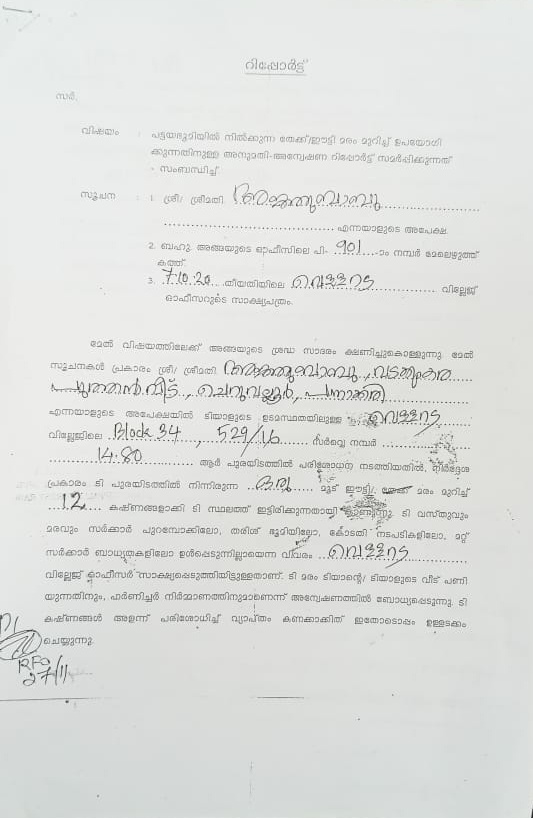 റിപ്പോർട്ട്
സർ,
വിഷയം : പട്ടയഭൂമിയിൽ നിൽക്കുന്ന തേക്ക്/ഈട്ടി മരം മുറിച്ച് ഉപയോഗി
ക്കുന്നതിനുള്ള അനുമതി-അന്വേഷണ റിപ്പോർട്ട് സമർപ്പിക്കുന്നത്
- സംബന്ധിച്ച്
സൂചന : 1. ശ്രീ/ ശ്രീമതി.
എന്നയാളുടെ അപേക്ഷ.
2. ബഹു. അങ്ങയുടെ ഓഫീസിലെ പി- 901 -ാം നമ്പർ മേലെഴുത്ത്
കത്ത്.
3. 7.10.20 തീയതിയിലെ വെള്ളനട വില്ലേജ്
ഓഫീസറുടെ സാക്ഷ്യപത്രം.
മേൽ വിഷയത്തിലേക്ക് അങ്ങയുടെ ശ്രദ്ധ സാദരം ക്ഷണിച്ചുകൊള്ളുന്നു. മേൽ
സൂചനകൾ പ്രകാരം ശ്രീ/ ശ്രീമതി.
പുത്തൻ വീട്, ചെറുവല്ലൂർ,
എന്നയാളുടെ അപേക്ഷയിൽ ടിയാളുടെ ഉടമസ്ഥതയിലുള്ള വെള്ളനട
വില്ലേജിലെ Block 34, 529/16 സർവ്വെ നമ്പർ
14.80 ആർ പുരയിടത്തിൽ പരിശോധന നടത്തിയതിൽ, നിർദ്ദേശ
പ്രകാരം ടി പുരയിടത്തിൽ നിന്നിരുന്ന ഒരു മൂട് ഈട്ടി/ തേക്ക് മരം മുറിച്ച്
12 കഷ്ണങ്ങളാക്കി ടി സ്ഥലത്ത് ഇട്ടിരിക്കുന്നതായി കാണുന്നു. ടി വസ്തുവും
മരവും സർക്കാർ പുറമ്പോക്കിലോ, തരിശ് ഭൂമിയിലോ, കോടതി നടപടികളിലോ, മറ്റ്
സർക്കാർ ബാധ്യതകളിലോ ഉൾപ്പെടുന്നില്ലായെന്ന വിവരം വെള്ളനട
വില്ലേജ് ഓഫീസർ സാക്ഷ്യപ്പെടുത്തിയിട്ടുള്ളതാണ്. ടി മരം ടിയാന്റെ/ ടിയാളുടെ വീട് പണി
യുന്നതിനും, ഫർണിച്ചർ നിർമ്മാണത്തിനുമാണെന്ന് അന്വേഷണത്തിൽ ബോധ്യപ്പെടുന്നു. ടി
കഷ്ണങ്ങൾ അളന്ന് പരിശോധിച്ച് വ്യാപ്തം കണക്കാക്കിത് ഇതോടൊപ്പം ഉള്ളടക്കം
ചെയ്യുന്നു.
RFO
27/11